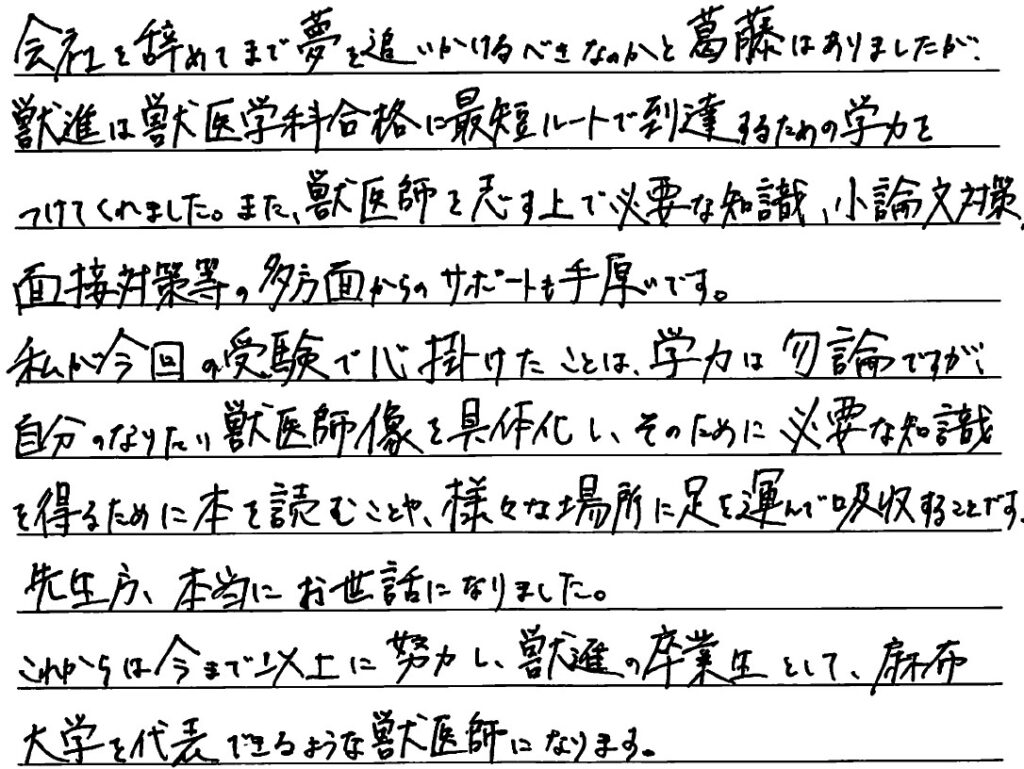 会社を辞めてまで夢を追いかけるべきなのかと葛藤はありましたが、
獣進は獣医学科合格に最短ルートで到達するための学力を
つけてくれました。また、獣医師を志す上で必要な知識、小論文対策、
面接対策等の多方面からのサポートも手厚いです。
私が今回の受験で心掛けたことは、学力は勿論ですが、
自分のなりたい獣医師像を具体化し、そのために必要な知識
を得るために本を読むことや、様々な場所に足を運んで吸収することです。
先生方、本当にお世話になりました。
これからは今まで以上に努力し、獣進の卒業生として、麻布
大学を代表できるような獣医師になります。